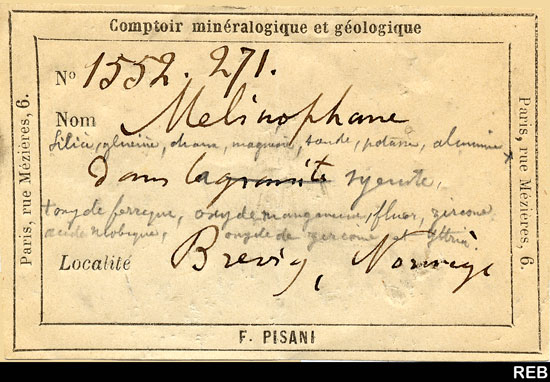 Comptoir minéralogique et géologique
Nº 1552. 271.
Nom Melinophane
silice, glucine, chaux, magnésie, soude, potasse, alumine
dans la granite syenite,
oxyde ferrique, oxyde manganeux, fluor, zircone
acide niobique, oxyde de zircone et yttria
Localité Brevig, Norvège
Paris, rue Mézières, 6.
Paris, rue Mézières, 6.
F. PISANI
REB